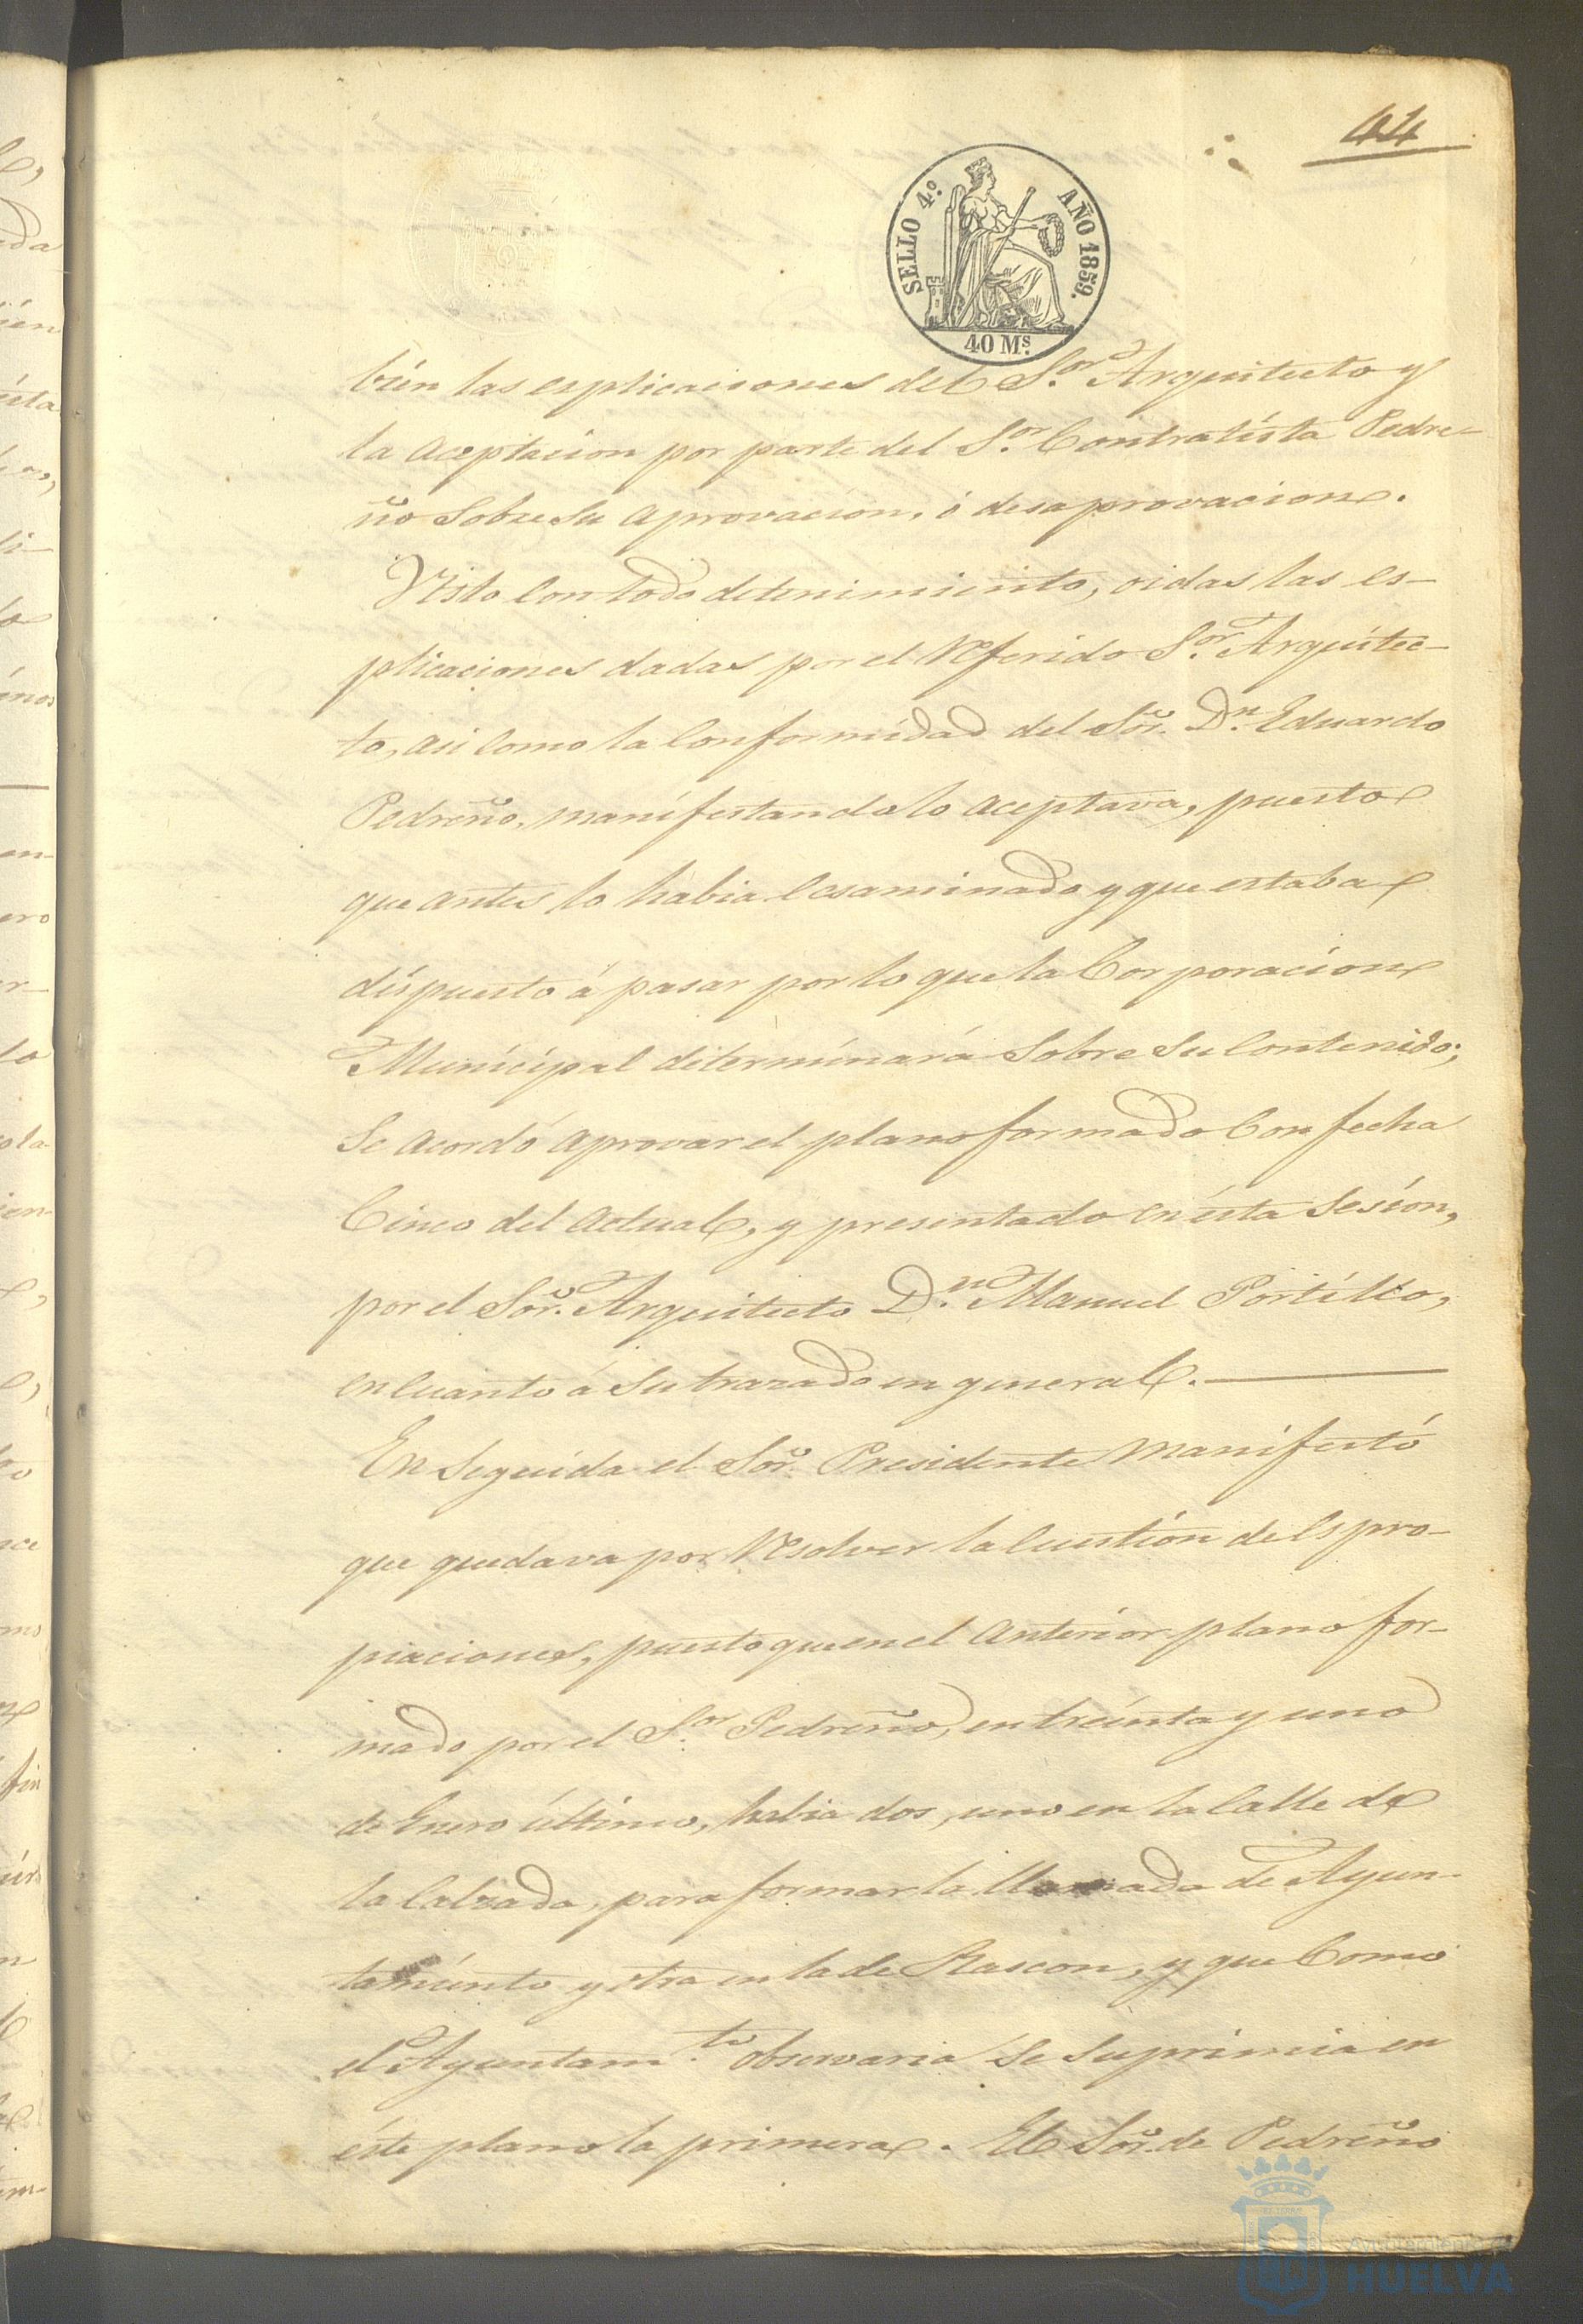 44
SELLO 4.º AÑO 1859.
40 M.s
bien las esplicaciones del S.or Arquitecto y
la aceptacion por parte del S.or Contratista Pedre-
ño sobre su aprovacion, ó desaprovacion.
Visto con todo detenimiento, oidas las es-
plicaciones dadas por el referido S.or Arquitec-
to, asi como la conformidad del Sor. D.n Eduardo
Pedreño, manifestando lo aceptava, puesto
que antes lo habia ecsaminado y que estaba
dispuesto á pasar por lo que la Corporacion
Municipal determinará sobre su contenido;
se acordó aprovar el plano formado con fecha
Cinco del actual, y presentado en ésta sesion,
por el Sor. Arquitecto D.n Manuel Portillo,
en cuanto á su trazado en general.
En seguida el Sor. Presidente manifestó
que quedava por resolver la cuestion de espro-
piaciones, puesto que en el anterior plano for-
mado por el S.or Pedreño, en treinta y uno
de Enero último, habia dos, uno en la Calle de
la Calzada, para formar la llamada de Ayun-
tamiento y otra en la de Rascon, y que como
el Ayuntam.to observaria se suprimia en
éste plano la primera. El Sor. de Pedreño
Ayuntamiento de
HUELVA